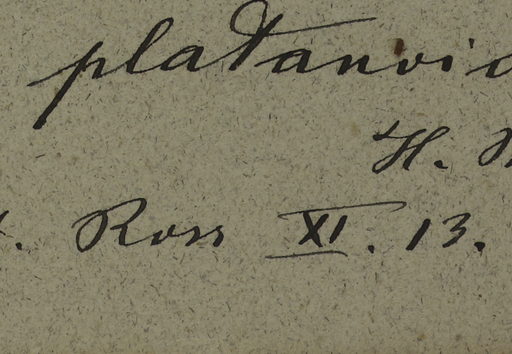 platanoid
H.
. Ross XI. 13.